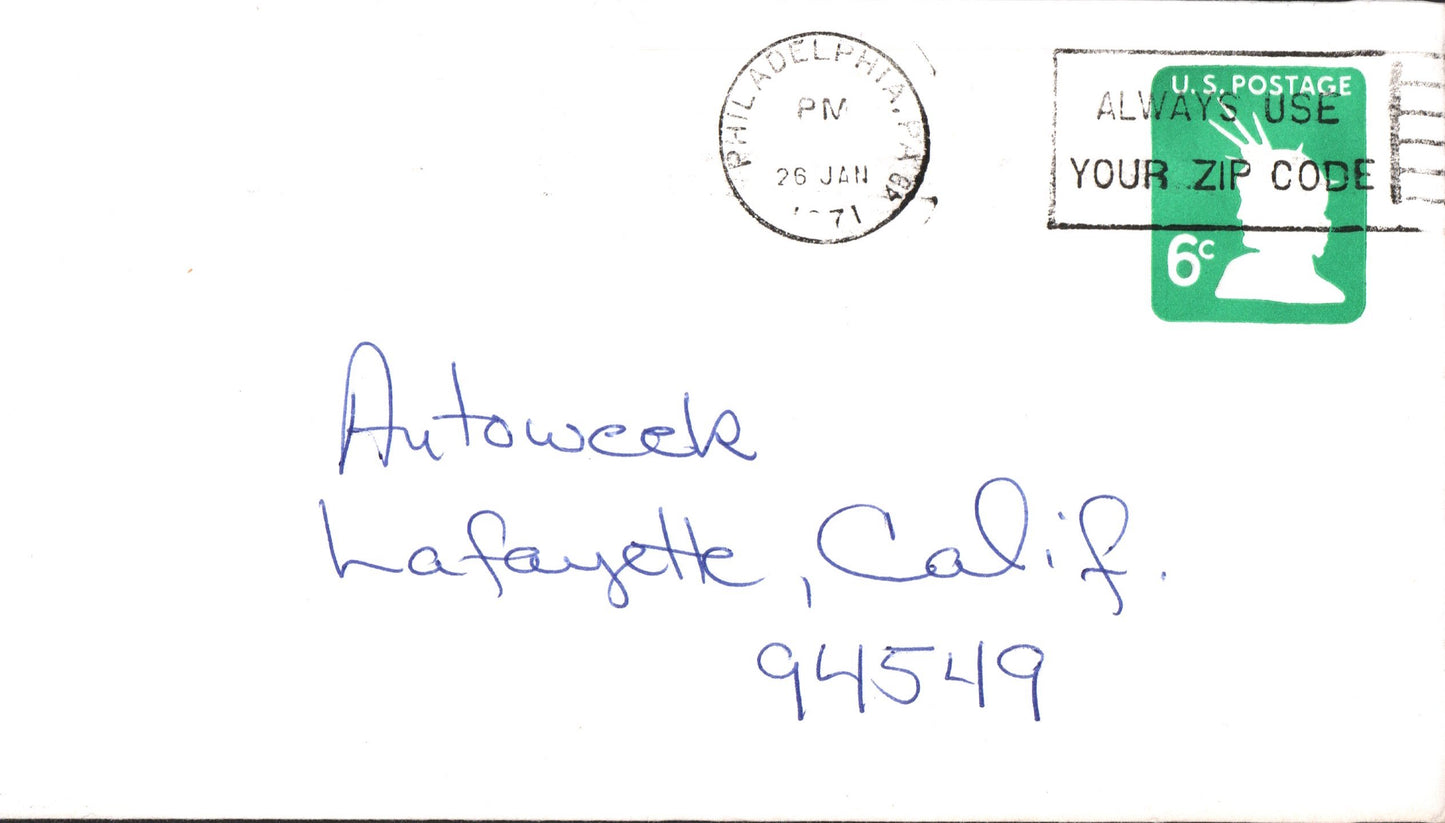 PHILADELPHIA, PA
PM
26 JAN
1971
U.S. POSTAGE
ALWAYS USE
YOUR ZIP CODE
6c
Autoweek
Lafayette, Calif.
94549